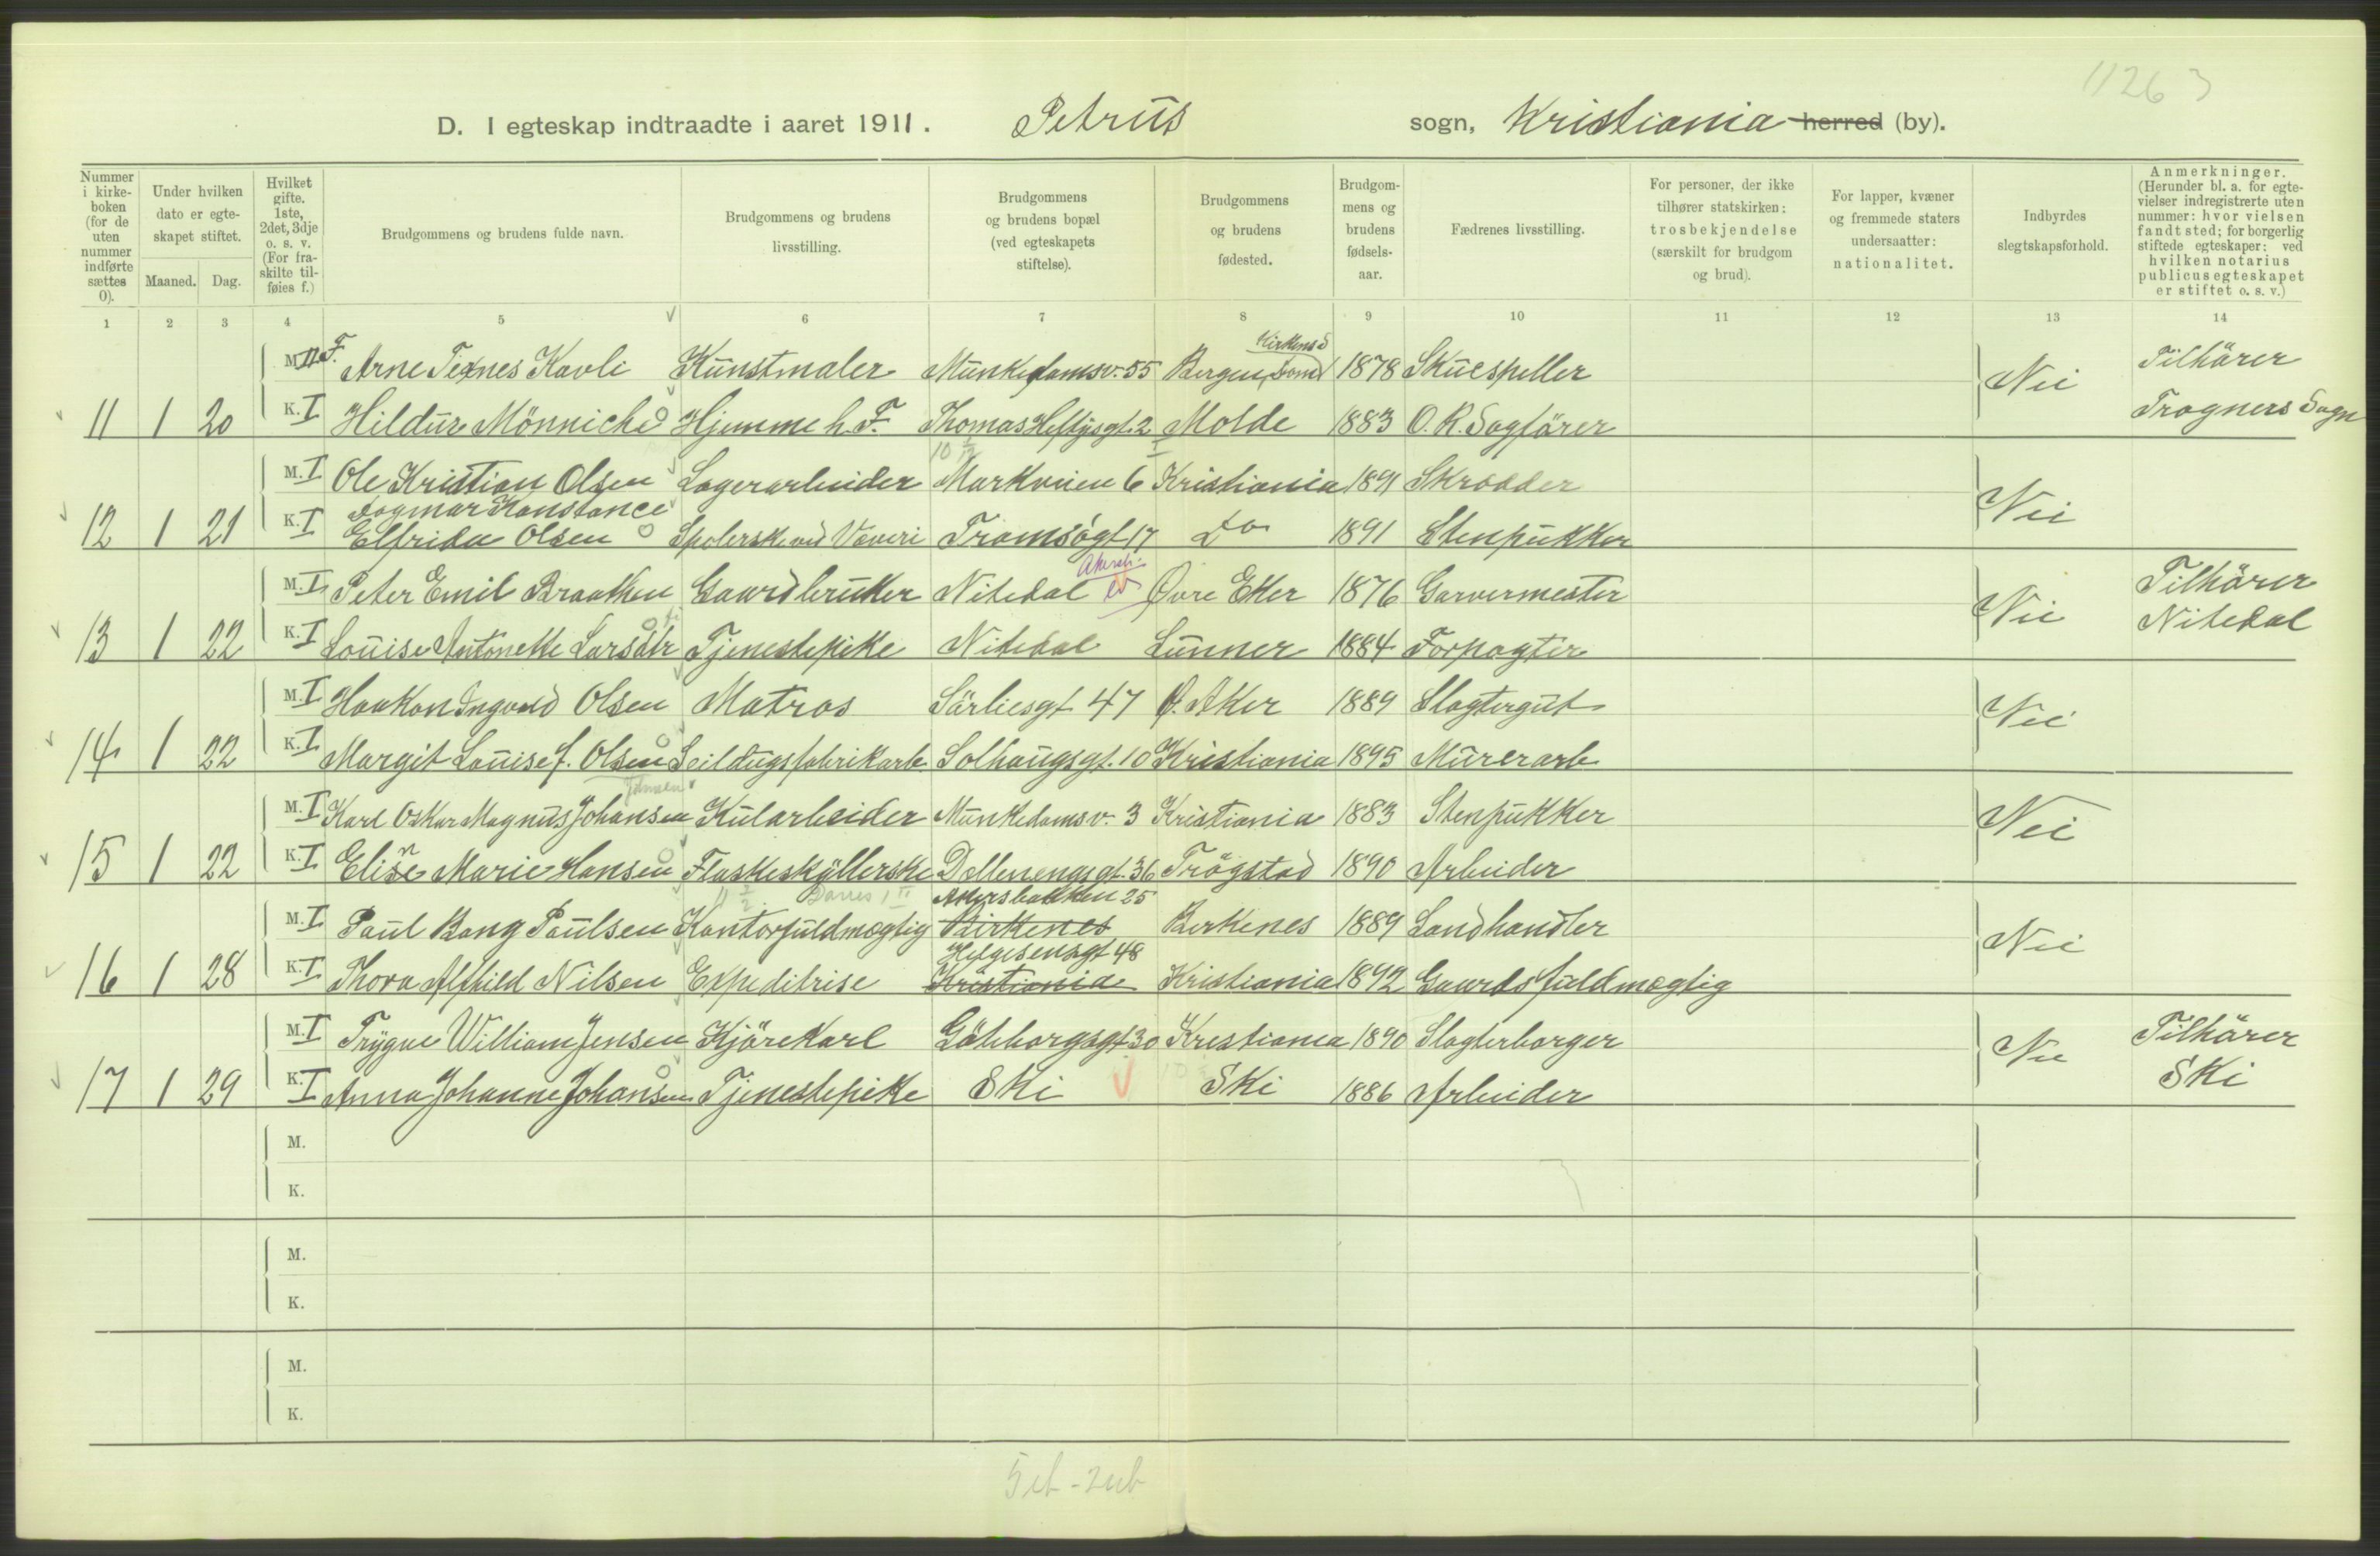 11263
D. I egteskap indtraadte i aaret 1911. Petrus sogn, Kristiania herred (by).
Nummer i kirkeboken (for de uten nummer indførte sættes 0).
Under hvilken dato er egteskapet stiftet.
Maaned. Dag.
Hvilket gifte. 1ste, 2det, 3dje o. s. v. (For fraskilte tilføies f.)
Brudgommens og brudens fulde navn.
Brudgommens og brudens livsstilling.
Brudgommens og brudens bopæl (ved egteskapets stiftelse).
Brudgommens og brudens fødested.
Brudgommens og brudens fødselsaar.
Fædrenes livsstilling.
For personer, der ikke tilhører statskirken: trosbekjendelse (særskilt for brudgom og brud).
For lapper, kvæner og fremmede staters undersaatter: nationalitet.
Indbyrdes slegtskapsforhold.
Anmerkninger. (Herunder bl. a. for egtevielser indregistrerte uten nummer: hvor vielsen fandt sted; for borgerlig stiftede egteskaper: ved hvilken notarius publicus egteskapet er stiftet o. s. v.)
1 2 3 4 5 6 7 8 9 10 11 12 13 14
M. II F. Arne Texnes Kavli Kunstmaler Munkedamsv. 55 Bergen 1878 Skuespeller Nei Tilhörer
11 1 20 K. I Hildur Mönniche Hjemme h. F. Thomas Heftysgt. 2 Molde 1883 O. R. Sagförer Frogners Sogn
M. I Ole Kristian Olsen Lagerarbeider Markveien 6 Kristiania 1891 Skrædder Nei
Dagmar Konstance
12 1 21 K. I Elfrida Olsen Spolerske ved Væveri Tromsögt 17 Do 1891 Stenpukker
M. I Peter Emil Braathen Gaardbruker Nitedal Øvre Eker 1876 Garvermester Nei Tilhörer
13 1 22 K. I Louise Antonette Larsdtr Tjenestepike Nitedal Lunner 1884 Forpagter Nitedal
M. I Haakon Ingvald Olsen Matros Särliesgt 47 Ø. Aker 1889 Slagtergut Nei
14 1 22 K. I Margit Louise f. Olsen Seildugsfabrikarb. Solhaugsgt. 10 Kristiania 1895 Murerarb
M. I Karl Oskar Magnus Johansen Kularbeider Munkedamsv. 3 Kristiania 1883 Stenpukker Nei
15 1 22 K. I Elise Marie Hansen Flaskeskyllerske Dællenengsgt. 36 Trögstad 1890 Arbeider
Akersbakken 25
M. I Paul Bang Paulsen Kontorfuldmægtig Birkenes Birkenes 1889 Landhandler Nei
Helgesensgt 48
16 1 28 K. I Thora Alfhild Nilsen Expeditrise Kristiania Kristiania 1892 Gaardsfuldmægtig
M. I Trygve William Jensen Kjörekarl Göteborgsgt 30 Kristiania 1890 Slagterborger Nei Tilhörer
17 1 29 K. I Anna Johanne Johansen Tjenestepike Ski Ski 1886 Arbeider Ski
M.
K.
M.
K.
M.
K.